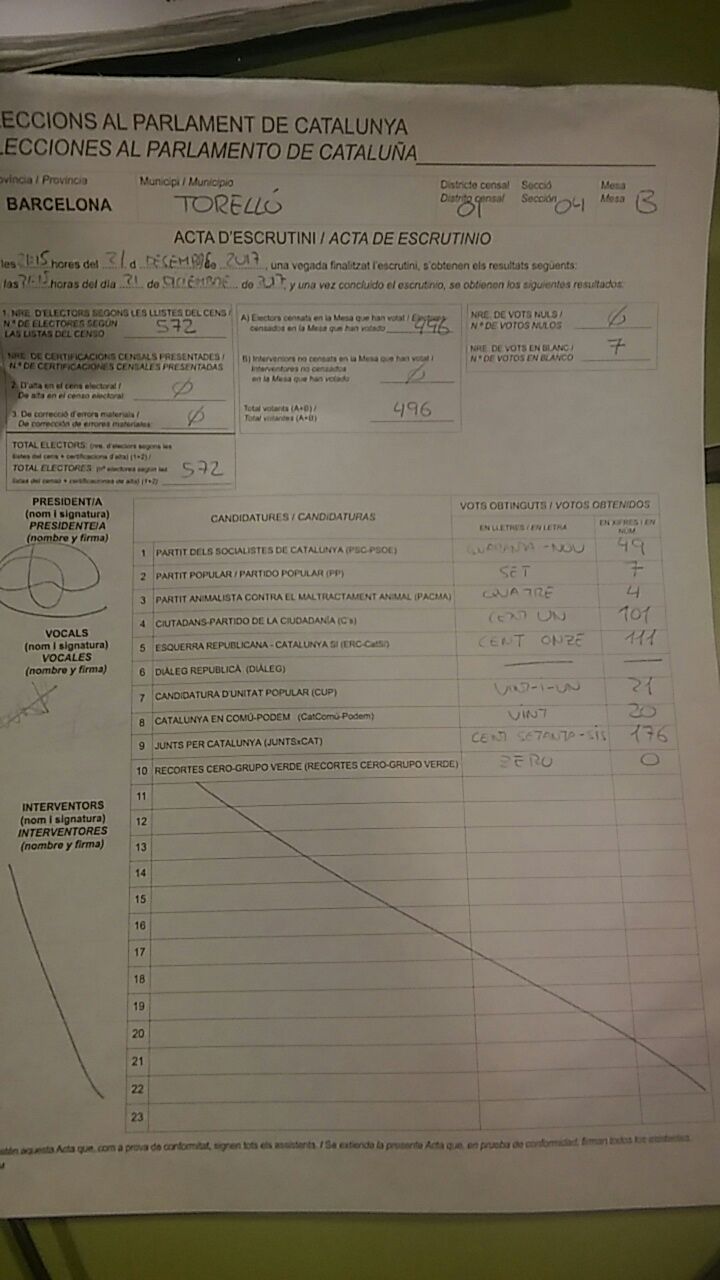 ECCIONS AL PARLAMENT DE CATALUNYA
LECCIONES AL PARLAMENTO DE CATALUÑA
ovíncia / Provincia
BARCELONA
Municipi / Municipio
TORELLÓ
Districte censal
Distrito censal
01
Secció
Sección 04
Mesa
Mesa B
ACTA D'ESCRUTINI / ACTA DE ESCRUTINIO
les 21:15 hores del 21 d DESEMBRE de 2017, una vegada finalitzat l'escrutini, s'obtenen els resultats següents:
las 21:15 horas del día 21 de DICIEMBRE de 2017 y una vez concluido el escrutinio, se obtienen los siguientes resultados:
1. NRE. D'ELECTORS SEGONS LES LLISTES DEL CENS /
N.º DE ELECTORES SEGÚN
LAS LISTAS DEL CENSO 572
NRE. DE CERTIFICACIONS CENSALS PRESENTADES /
N.º DE CERTIFICACIONES CENSALES PRESENTADAS
2. D'alta en el cens electoral /
De alta en el censo electoral: Ø
3. De correcció d'errors materials /
De corrección de errores materiales: Ø
TOTAL ELECTORS: (nre. d'electors segons les
llistes del cens + certificacions d'alta) (1+2) /
TOTAL ELECTORES: (nº electores según las
listas del censo + certificaciones de alta) (1+2) 572
A) Electors censats en la Mesa que han votat / Electores
censados en la Mesa que han votado 496
B) Interventors no censats en la Mesa que han votat /
Interventores no censados
en la Mesa que han votado Ø
Total votants (A+B) /
Total votantes (A+B) 496
NRE. DE VOTS NULS /
N.º DE VOTOS NULOS Ø
NRE. DE VOTS EN BLANC /
N.º DE VOTOS EN BLANCO 7
PRESIDENT/A
(nom i signatura)
PRESIDENTE/A
(nombre y firma)
VOCALS
(nom i signatura)
VOCALES
(nombre y firma)
INTERVENTORS
(nom i signatura)
INTERVENTORES
(nombre y firma)
CANDIDATURES / CANDIDATURAS
VOTS OBTINGUTS / VOTOS OBTENIDOS
EN LLETRES / EN LETRA
EN XIFRES / EN
NÚM.
1 PARTIT DELS SOCIALISTES DE CATALUNYA (PSC-PSOE) QUARANTA-NOU 49
2 PARTIT POPULAR / PARTIDO POPULAR (PP) SET 7
3 PARTIT ANIMALISTA CONTRA EL MALTRACTAMENT ANIMAL (PACMA) QUATRE 4
4 CIUTADANS-PARTIDO DE LA CIUDADANÍA (C's) CENT UN 101
5 ESQUERRA REPUBLICANA - CATALUNYA SÍ (ERC-CatSí) CENT ONZE 111
6 DIÀLEG REPUBLICÀ (DIÀLEG)
7 CANDIDATURA D'UNITAT POPULAR (CUP) VINT-I-UN 21
8 CATALUNYA EN COMÚ-PODEM (CatComú-Podem) VINT 20
9 JUNTS PER CATALUNYA (JUNTSxCAT) CENT SETANTA-SIS 176
10 RECORTES CERO-GRUPO VERDE (RECORTES CERO-GRUPO VERDE) ZERO 0
11
12
13
14
15
16
17
18
19
20
21
22
23
aquesta Acta que, com a prova de conformitat, signen tots els assistents. / Se extiende la presente Acta que, en prueba de conformidad, firman todos los asistentes.